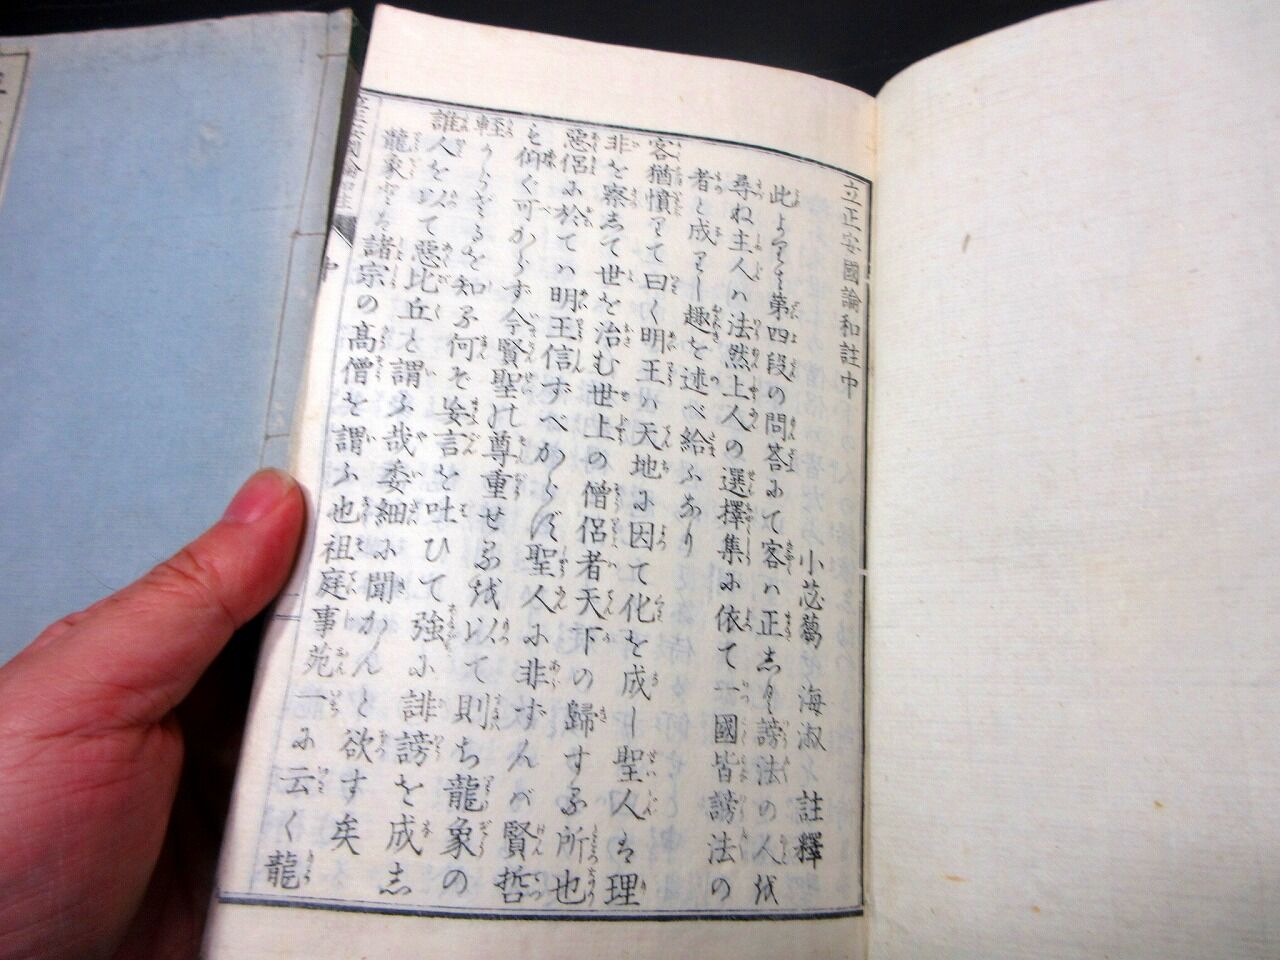 立正安國論和註中
小苾蒭海淑註釋
此よりは第四段の問答にて客ハ正しく謗法の人を
尋ね主人ハ法然上人の選擇集に依て一國皆謗法の
者と成りし趣を述べ給ふなり
客猶憤りて曰く明王ハ天地に因て化を成し聖人は理
非を察して世を治む世上の僧侶者天下の歸する所也
惡侶に於てハ明王信ずべからず聖人に非ずんバ賢哲
も仰ぐ可からず今賢聖の尊重せるを以て則ち龍象の
軽からざるを知る何そ妄言を吐ひて強に誹謗を成し
誰人を以て惡比丘と謂ふ哉委細に聞かんと欲す矣
龍象とは諸宗の高僧を謂ふ也祖庭事苑一に云く龍
立正安國論和註
中